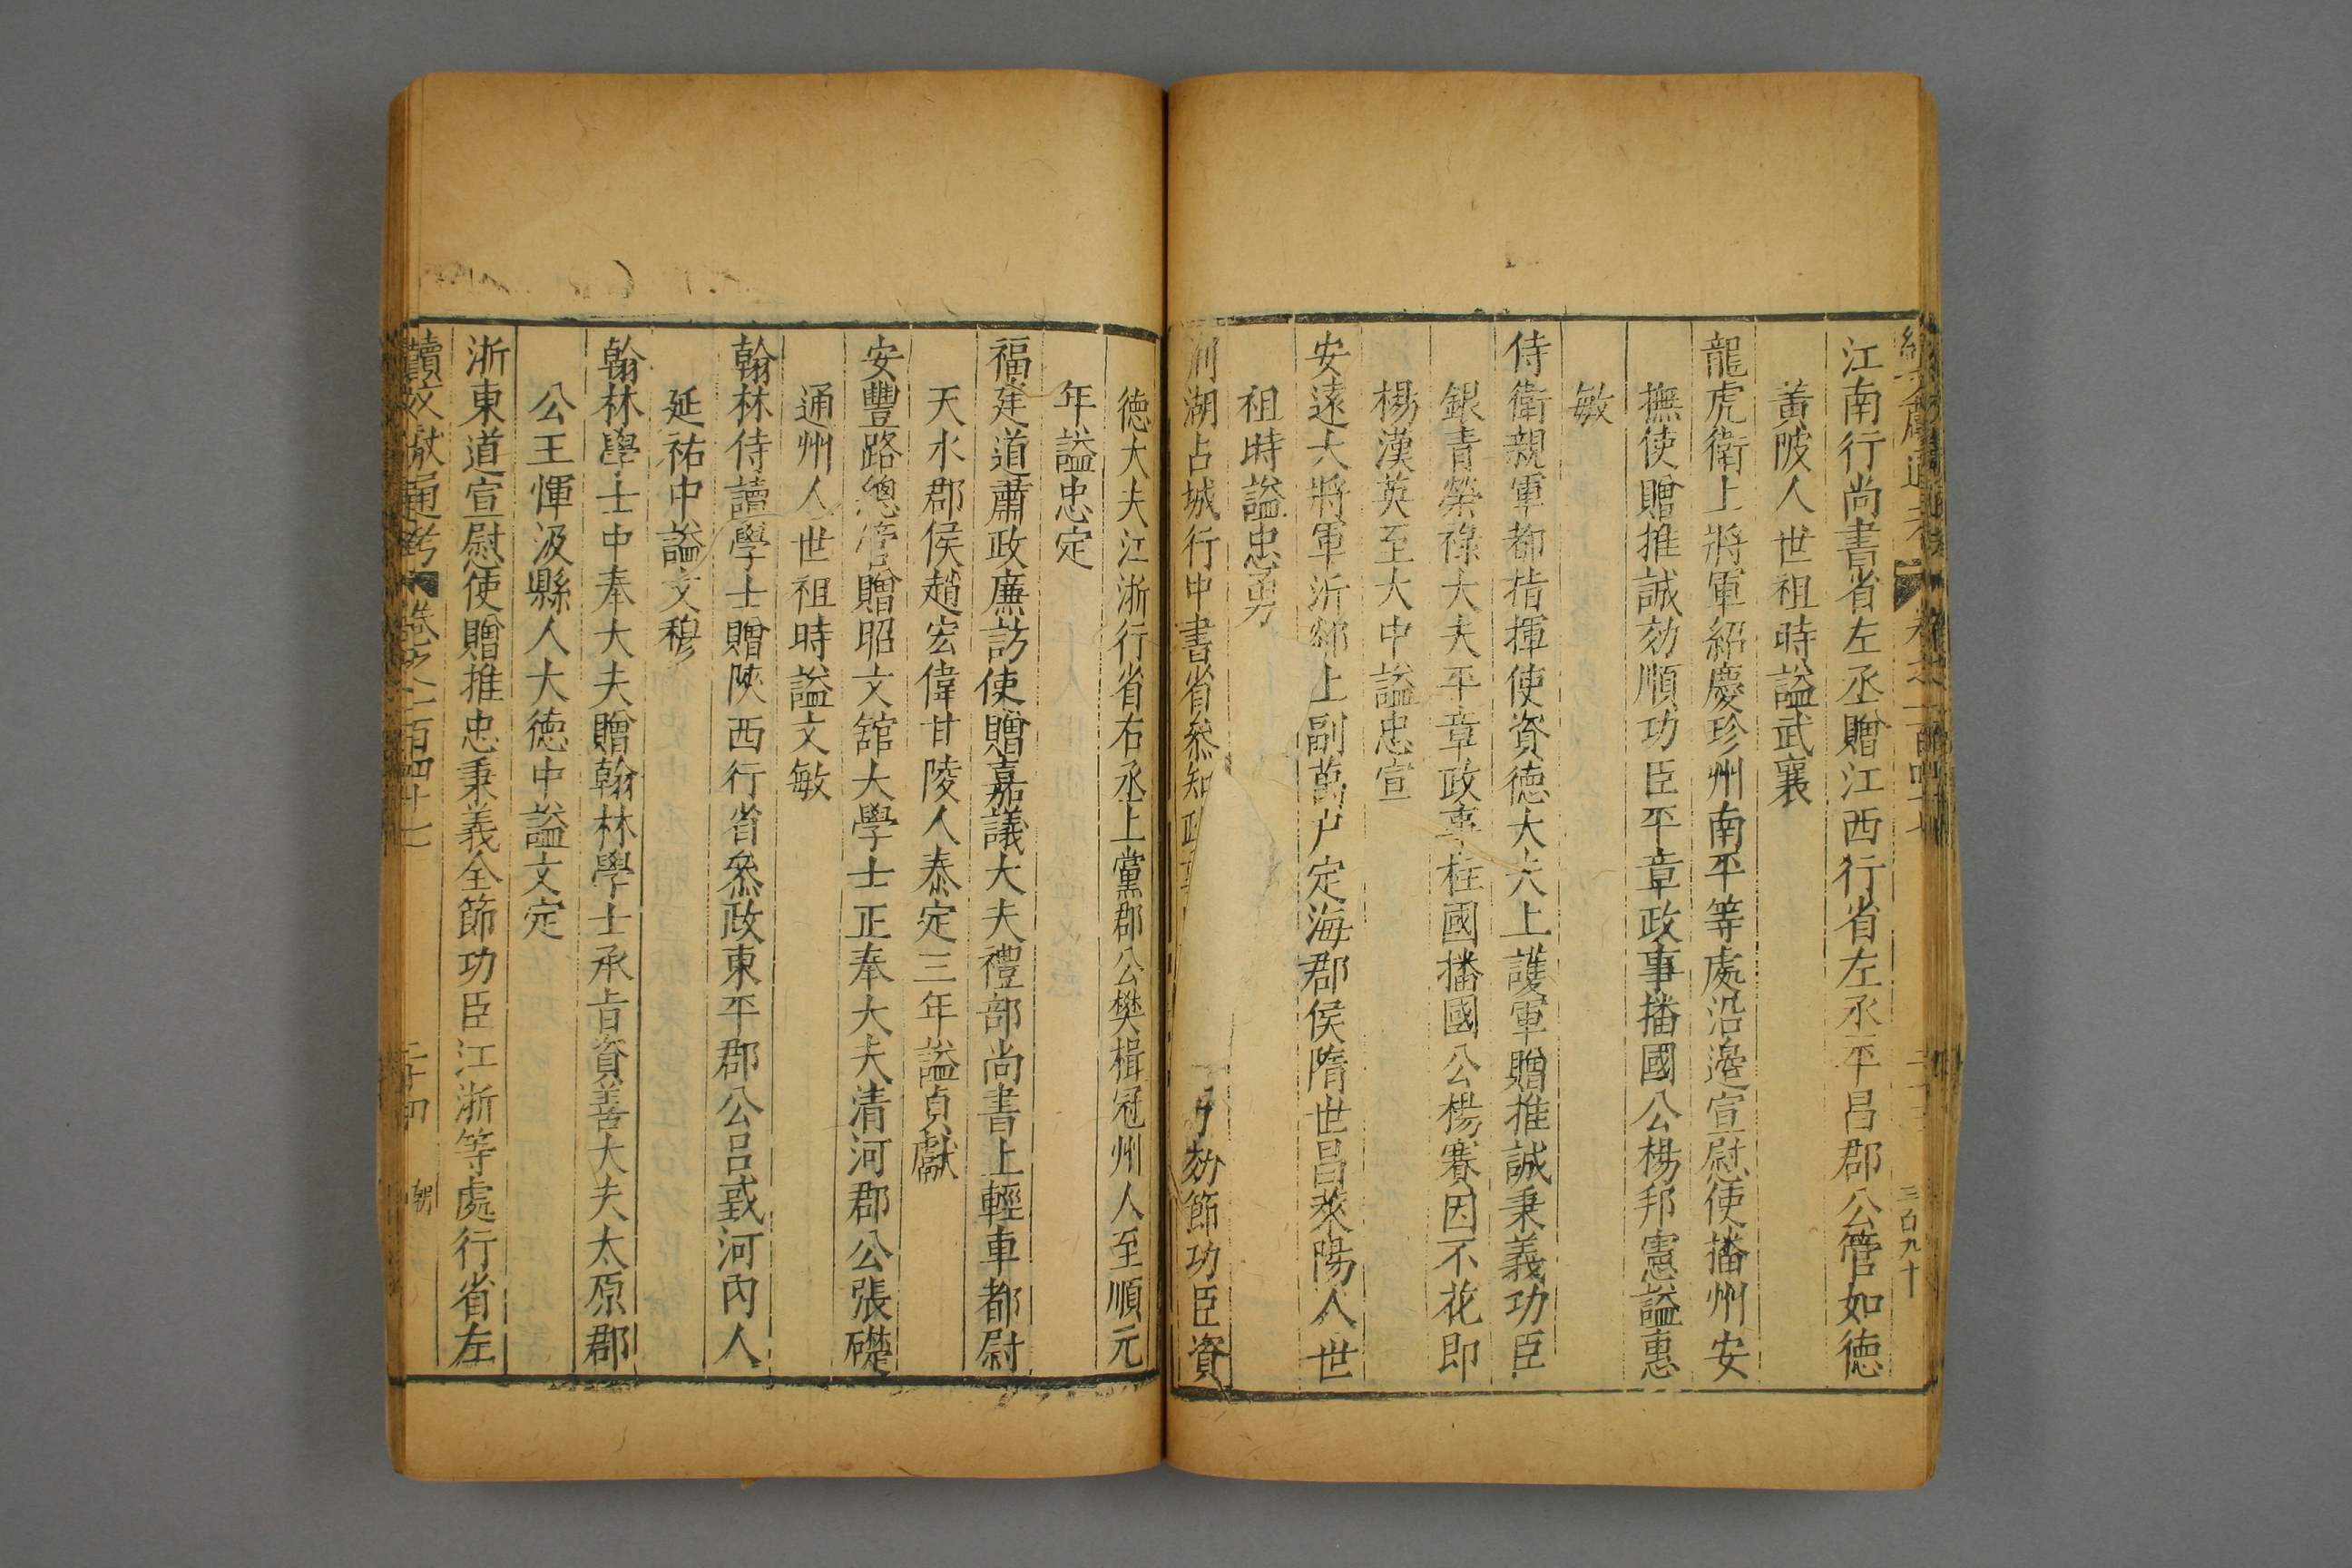 江南行尚書省左丞贈江西行省左丞平昌郡公管如德
黃陂人世祖時謚武襄
龍虎衛上將軍紹慶珍州南平等處沿邊宣慰使播州安
撫使贈推誠効順功臣平章政事播國公楊邦憲謚惠
敏
侍衛親軍都指揮使資德大夫上護軍贈推誠秉義功臣
銀青榮祿大夫平章政事柱國播國公楊賽因不花即
楊漢英至大中謚忠宣
安遠大將軍沂郯上副萬户定海郡侯隋世昌萊陽人世
祖時謚忠勇
湖占城行中書省叅知政 効節功臣資
德大夫江浙行省右丞上黨郡公樊楫冠州人至順元
年謚忠定
福建道肅政廉訪使贈嘉議大夫禮部尚書上輕車都尉
天水郡侯趙宏偉甘陵人泰定三年謚貞獻
安豐路總管贈昭文舘大學士正奉大夫清河郡公張礎
通州人世祖時謚文敏
翰林侍讀學士贈陝西行省叅政東平郡公呂㦛河內人
延祐中謚文穆
翰林學士中奉大夫贈翰林學士承旨資善大夫太原郡
公王惲汲縣人大德中謚文定
浙東道宣慰使贈推忠秉義全節功臣江浙等處行省左
續文獻通考 卷之一百四十七 二十四